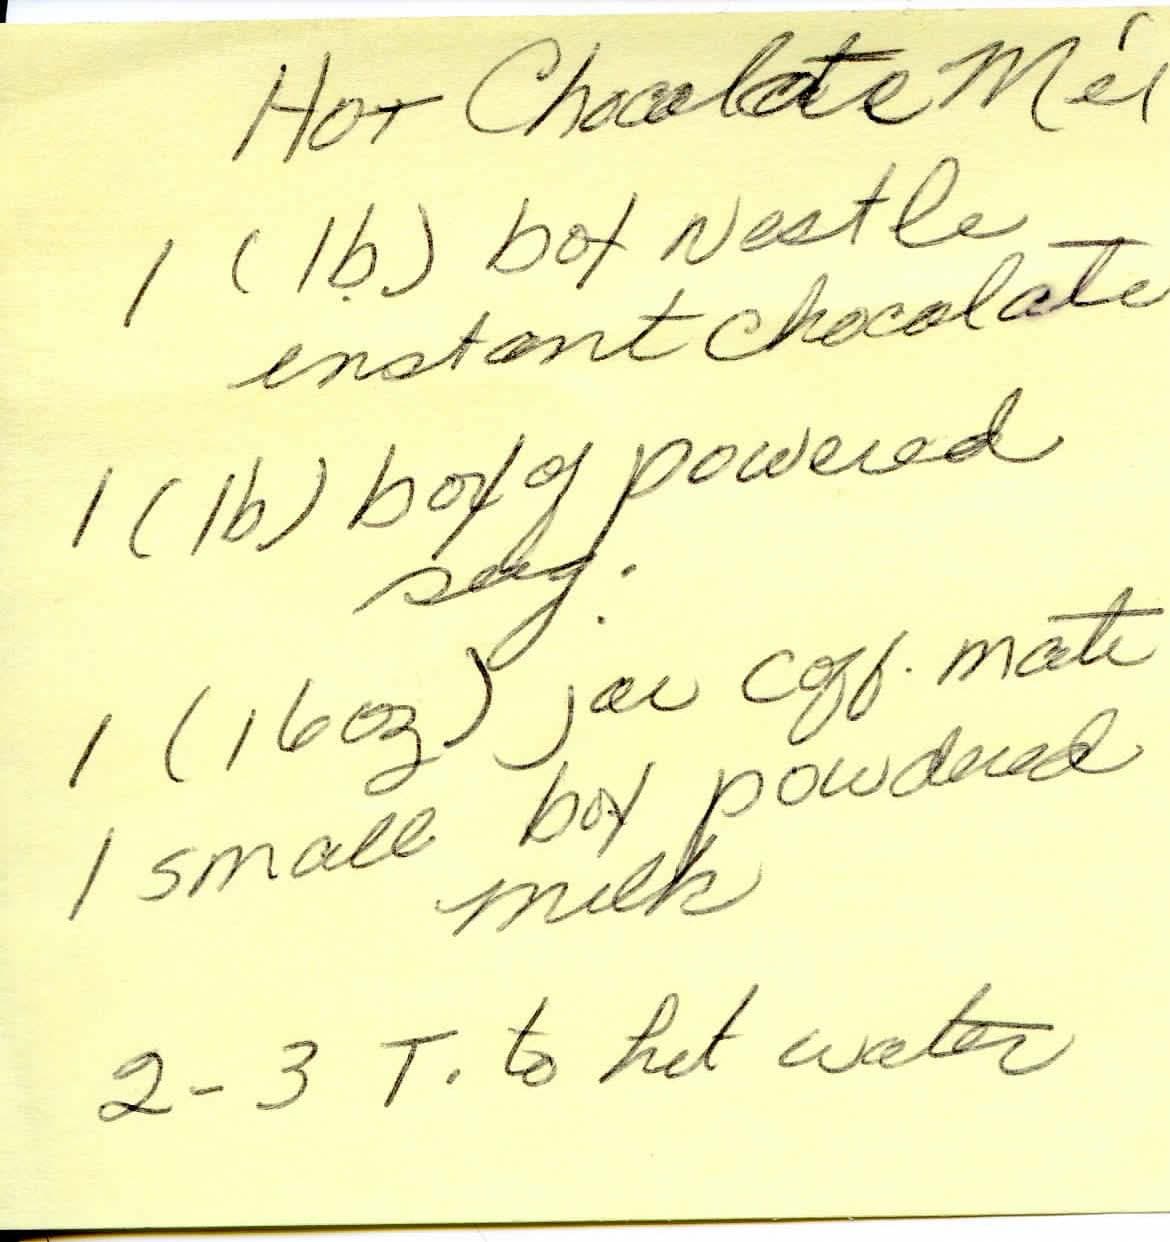 Hot Chocolate Mi
1 (lb.) box Nestle
instant chocolate
1 (lb) box of powered
sug.
1 (16 oz) jar coff. mate
1 small box powdered
milk
2-3 T. to hot water